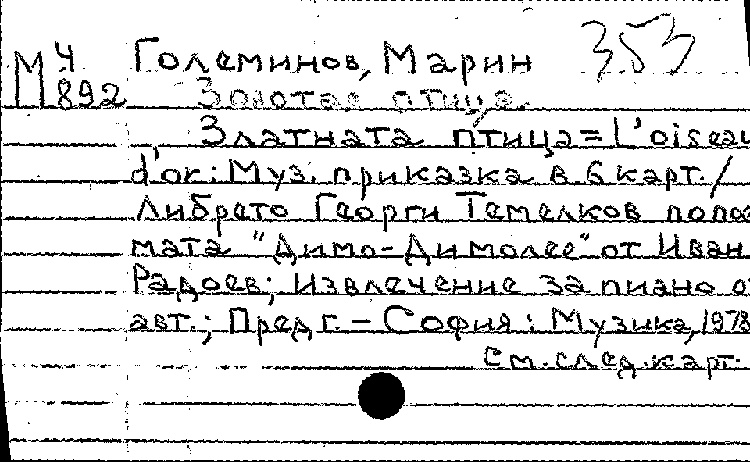 М 4 Големинов, Марин 353
892 Золотая птица.
Златната птица = L'oiseau
d'or: Муз. приказка в 6 карт. /
Либрето Георги Темелков по пое
мата "Димо-Димолее" от Иван
Радоев; Извлечение за пиано о
авт.; Предг. – София: Музика, 1978
см. след. карт.